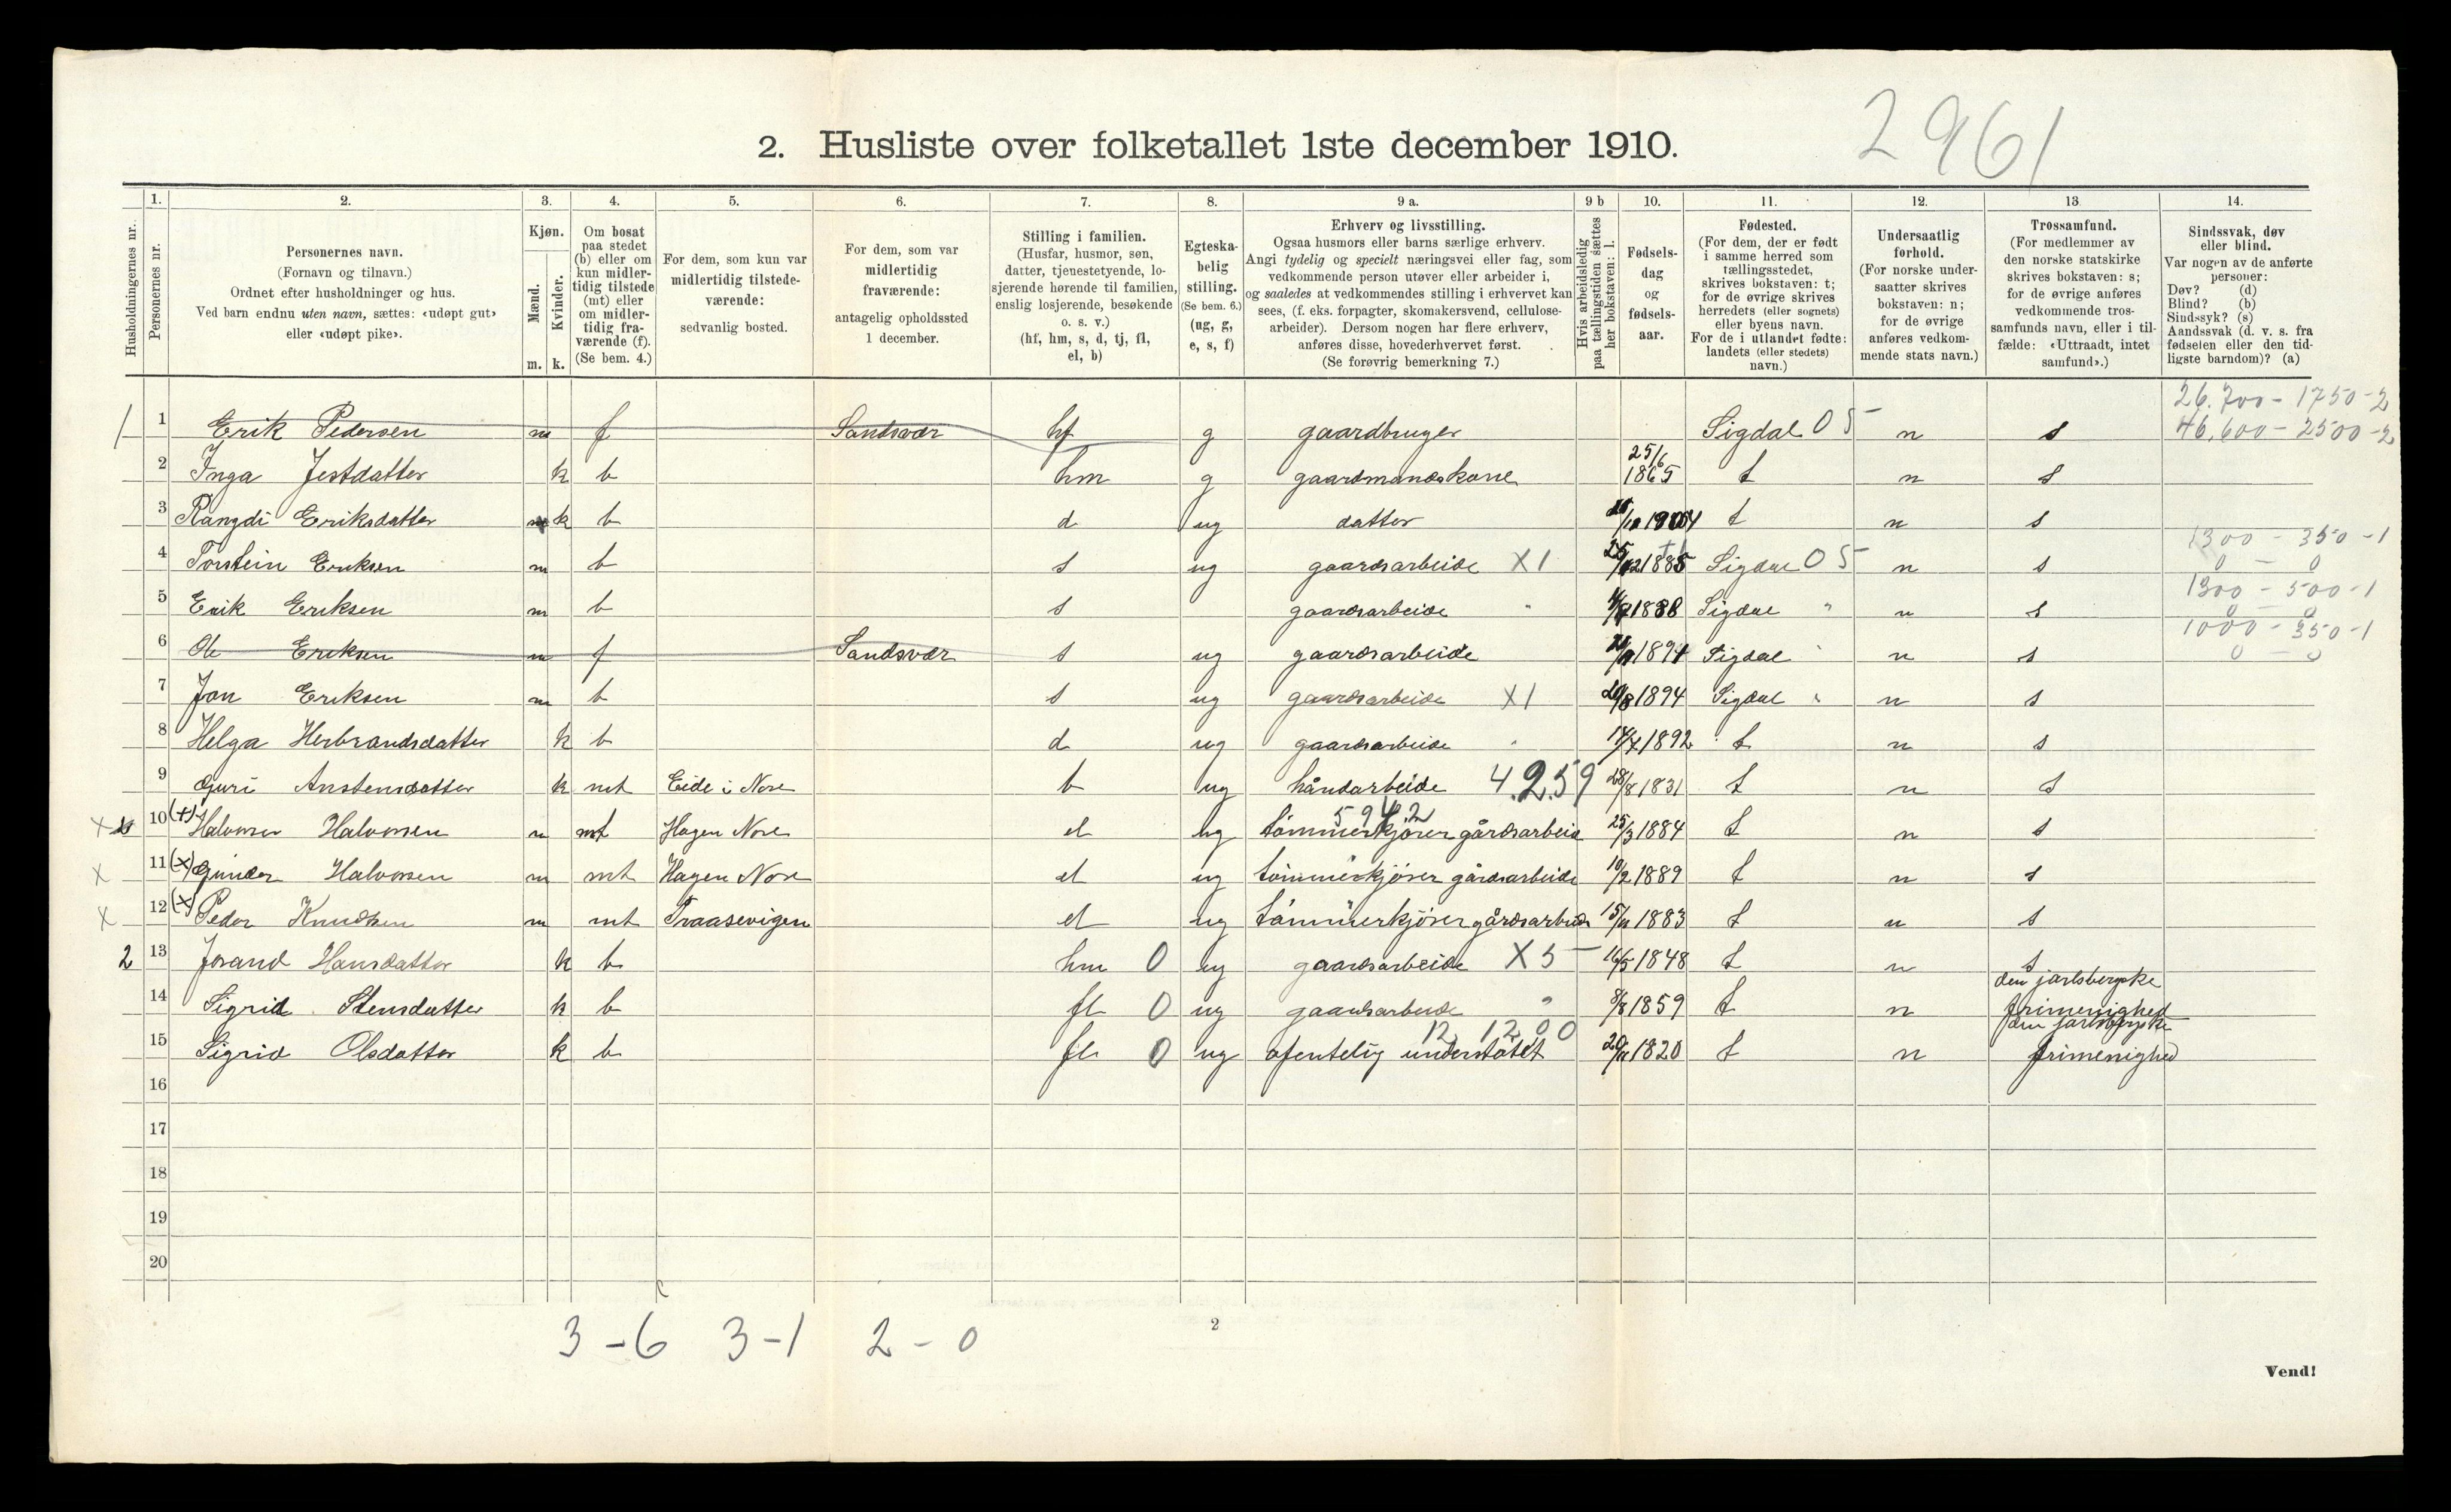 2961
2. Husliste over folketallet 1ste december 1910.
1. 2. 3. 4. 5. 6. 7. 8. 9 a. 9 b 10. 11. 12. 13 14.
Husholdningernes nr.
Personernes nr.
Personernes navn.
(Fornavn og tilnavn.)
Ordnet efter husholdninger og hus.
Ved barn endnu uten navn, sættes: «udøpt gut»
eller «udøpt pike».
Kjøn.
Mænd.
Kvinder.
m. k.
Om bosat
paa stedet
(b) eller om
kun midler-
tidig tilstede
(mt) eller
om midler-
tidig fra-
værende (f).
(Se bem. 4.)
For dem, som kun var
midlertidig tilstede-
værende:
sedvanlig bosted.
For dem, som var
midlertidig
fraværende:
antagelig opholdssted
1 december.
Stilling i familien.
(Husfar, husmor, søn,
datter, tjenestetyende, lo-
sjerende hørende til familien,
enslig losjerende, besøkende
o. s. v.)
(hf, hm, s, d, tj, fl,
el, b)
Egteska-
belig
stilling.
(Se bem. 6.)
(ug, g,
e, s, f)
Erhverv og livsstilling.
Ogsaa husmors eller barns særlige erhverv.
Angi tydelig og specielt næringsvei eller fag, som
vedkommende person utøver eller arbeider i,
og saaledes at vedkommendes stilling i erhvervet kan
sees, (f. eks. forpagter, skomakersvend, cellulose-
arbeider). Dersom nogen har flere erhverv,
anføres disse, hovederhvervet først.
(Se forøvrig bemerkning 7.)
Hvis arbeidsledig
paa tællingstiden sættes
her bokstaven: l.
Fødsels-
dag
og
fødsels-
aar.
Fødested.
(For dem, der er født
i samme herred som
tællingsstedet,
skrives bokstaven: t;
for de øvrige skrives
herredets (eller sognets)
eller byens navn.
For de i utlandet fødte:
landets (eller stedets)
navn.)
Undersaatlig
forhold.
(For norske under-
saatter skrives
bokstaven: n;
for de øvrige
anføres vedkom-
mende stats navn.)
Trossamfund.
(For medlemmer av
den norske statskirke
skrives bokstaven: s;
for de øvrige anføres
vedkommende tros-
samfunds navn, eller i til-
fælde: «Uttraadt, intet
samfund».)
Sindssvak, døv
eller blind.
Var nogen av de anførte
personer:
Døv? (d)
Blind? (b)
Sindssyk? (s)
Aandssvak (d. v. s. fra
fødselen eller den tid-
ligste barndom)? (a)
26.700 - 1750 - 2
1 1 Erik Pedersen m f Sandsvær hf g gaardbruger Sigdal 05 n s 46.600 - 2500 - 2
2 Inga Jestdatter k b hm g gaardmandskone 25/6 1865 t n s
3 Rangdi Eriksdatter k b d ug datter t n s
1300 - 350 - 1
4 Torstein Eriksen m b s ug gaardsarbeide X1 25/12 1885 Sigdal 05 n s 0 - 0
1300 - 500 - 1
5 Erik Eriksen m b s gaardsarbeide " 1888 Sigdal " n s 0 - 0
1000 - 350 - 1
6 Ole Eriksen m f Sandsvær s ug gaardsarbeide 1891 Sigdal " n s 0 - 0
7 Jon Eriksen m b s ug gaardsarbeide X1 20/8 1894 Sigdal " n s
8 Helga Herbrandsdatter k b d ug gaardsarbeide " 1892 t n s
9 Guri Anstensdatter k mt Eide i Nore b ug håndarbeide 4.2.59 28/8 1831 t n s
5942
X 10 (+) Halvor Halvorsen m mt Hagen Nore el ug tømmerkjører gårdsarbeid 25/3 1884 t n s
X 11 (X) Gunder Halvorsen m mt Hagen Nore el ug tømmerkjører gårdsarbeide 10/2 1889 t n s
X 12 (X) Peder Knudsen m mt Traasevigen el ug tømmerkjører gårdsarbeide 15/11 1883 t n s
2 13 Jorand Hansdatter k b hm 0 ug gaardsarbeide X5 16/5 1848 t n s
14 Sigrid Stensdatter k b fl 0 ug gaardsarbeide " 8/8 1859 t n den jarlsbergske frimenighed
12.1200
15 Sigrid Olsdatter k b fl 0 ug ofentelig understøtet 20/11 1820 t n den jarlsbergske frimenighed
16
17
18
19
20
3 - 6 3 - 1 2 - 0
2
Vend!